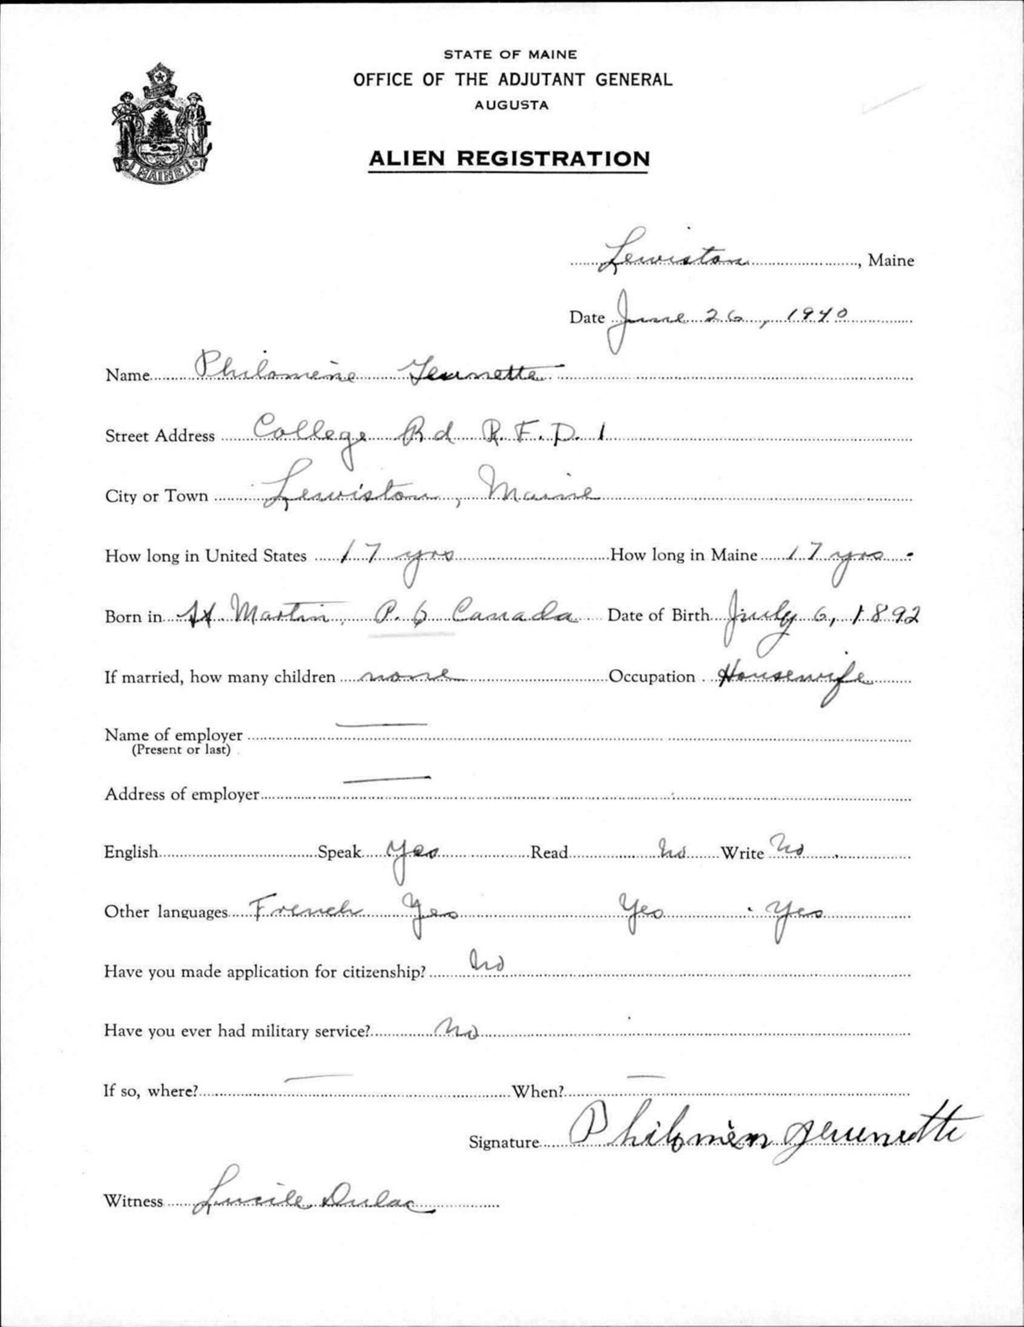 STATE OF MAINE
OFFICE OF THE ADJUTANT GENERAL
AUGUSTA
ALIEN REGISTRATION
MAINE
Lewiston, Maine
Date June 26, 1940
Name Philomène Jeunette
Street Address College Rd R.F.D. 1
City or Town Lewiston, Maine
How long in United States 17 yrs How long in Maine 17 yrs.
Born in St. Martin, P.Q Canada Date of Birth July 6, 1892
If married, how many children none Occupation Housewife
Name of employer —
(Present or last)
Address of employer —
English Speak Yes Read No Write No
Other languages French Yes Yes Yes
Have you made application for citizenship? No
Have you ever had military service? No
If so, where? — When? —
Signature Philomèn Jeunette
Witness Lucile Dulac